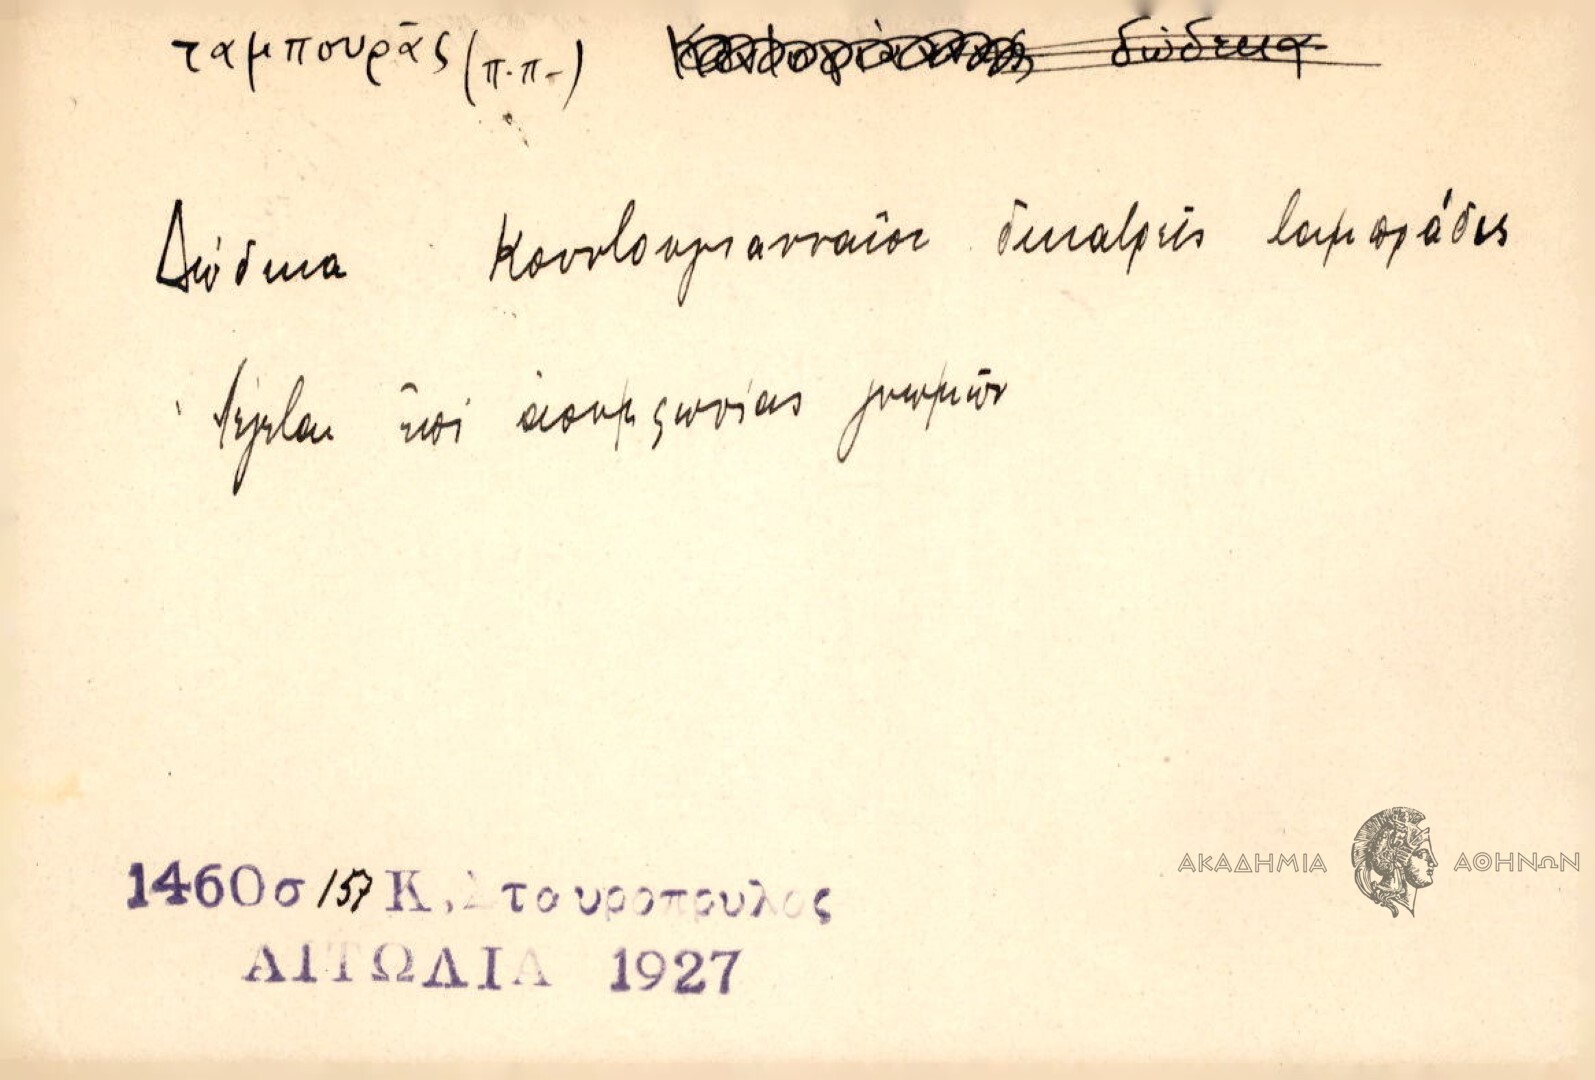 ταμπουρᾶς (π.π.) δώδεκα
Δώδεκα Κουτσουγιανναῖοι δεκατρεῖς ταμπράδες
Λέγεται ἐπὶ ἀσυμφωνίας γνωμῶν
1460σ/157 Κ. Σταυρόπουλος
ΑΙΤΩΛΙΑ 1927
ΑΚΑΔΗΜΙΑ ΑΘΗΝΩΝ